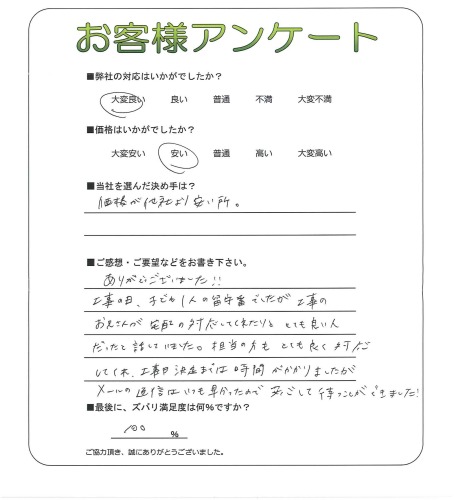 お客様アンケート
■弊社の対応はいかがでしたか？
大変良い 良い 普通 不満 大変不満
■価格はいかがでしたか？
大変安い 安い 普通 高い 大変高い
■当社を選んだ決め手は？
価格が他社より安い所。
■ご感想・ご要望などをお書き下さい。
ありがとうございました!!
工事の日、子ども1人の留守番でしたが工事の
お兄さんが宅配の対応してくれたりととても良い人
だったと話していました。担当の方もとても良く対応
してくれ、工事日決定までは時間がかかりましたが
メールの返信はいつも早かったので安心して待つことができました!
■最後に、ズバリ満足度は何%ですか？
100 %
ご協力頂き、誠にありがとうございました。